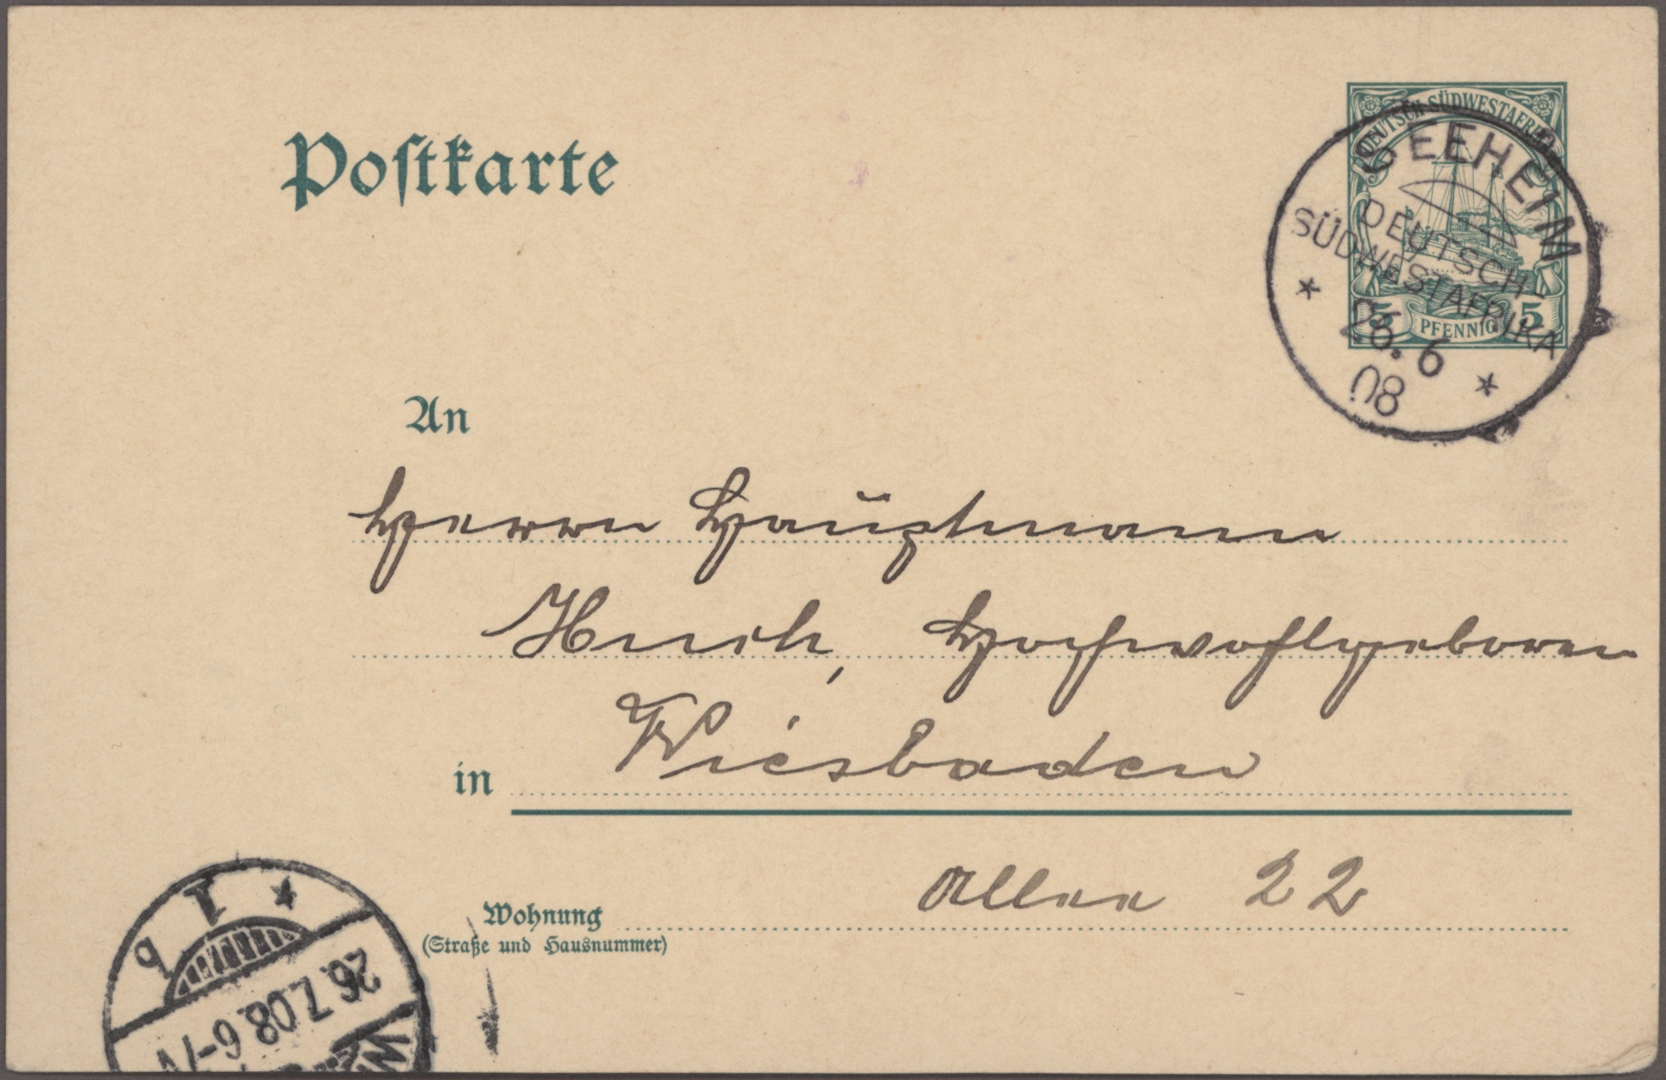 Postkarte
DEUTSCH-SÜDWESTAFRIKA
5 PFENNIG 5
SEEHEIM
DEUTSCH-
SÜDWESTAFRIKA
26. 6
08
An
Herrn Hauptmann
Hochwohlgeboren
in Wiesbaden
Wohnung Allee 22
(Straße und Hausnummer)
1 b
26.7.08.6-7V